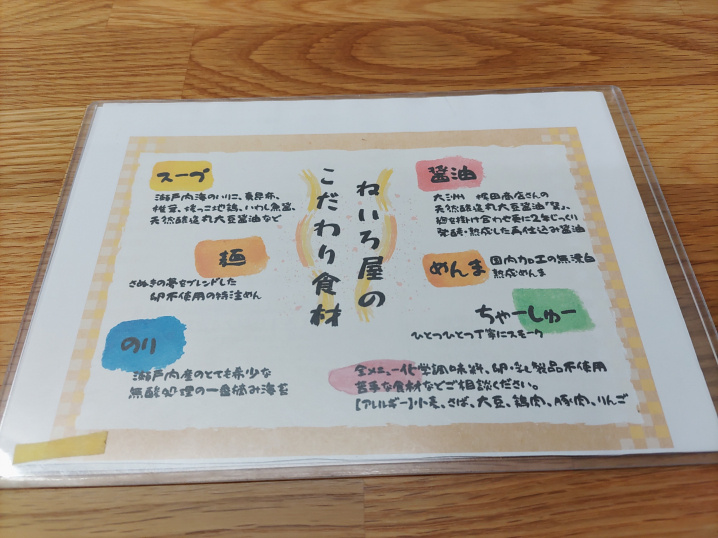 ねいろ屋の
こだわり食材
スープ
瀬戸内海のいりこ、真昆布、
椎茸、地鶏、いわし魚醤、
天然醸造丸大豆醤油など
麺
さぬきの夢をブレンドした
卵不使用の特注めん
のり
瀬戸内産のとても希少な
無酸処理の一番摘み海苔
醤油
大洲 梶田商店さんの
天然醸造丸大豆醤油「巽」。
麹を掛け合わせ更に2年じっくり
発酵・熟成した再仕込み醤油
めんま
国内加工の無漂白
熟成めんま
ちゃーしゅー
ひとつひとつ丁寧にスモーク
全メニュー化学調味料、卵・乳製品不使用
苦手な食材などご相談ください。
【アレルギー】小麦、さば、大豆、鶏肉、豚肉、りんご